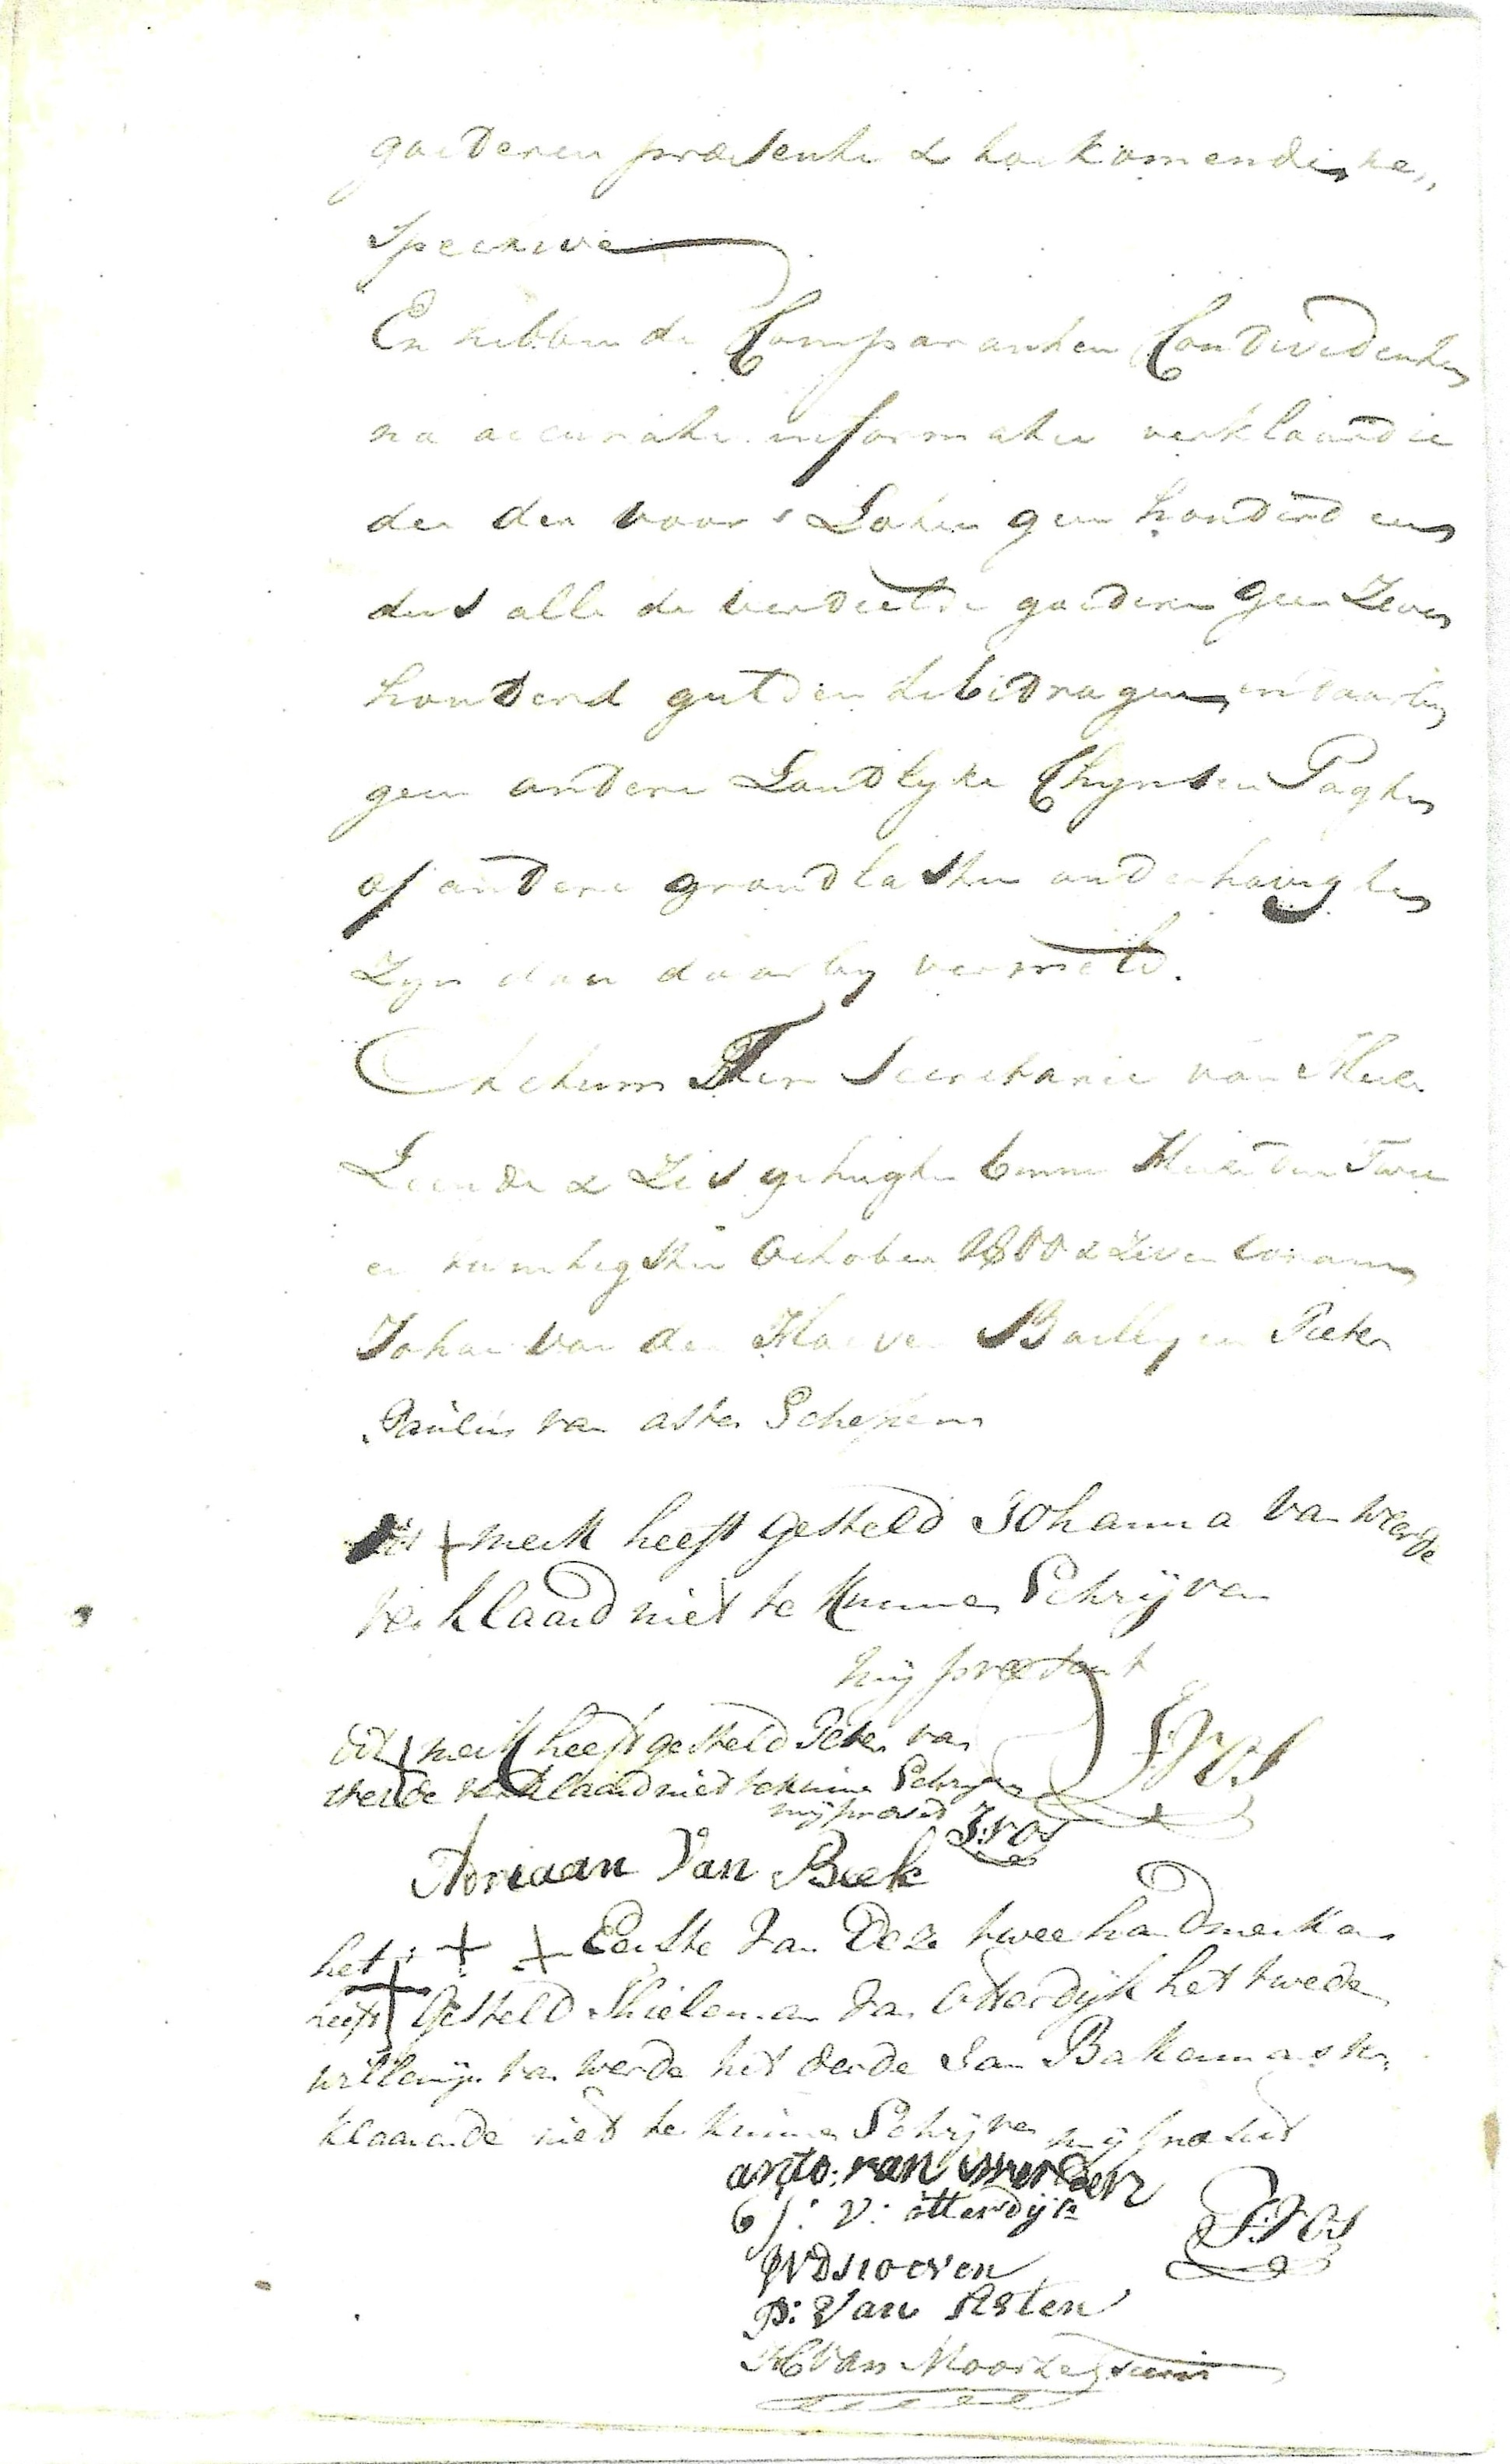 goederen præsente & toekomende, re,,
spective
En hebben de Comparanten Condividenten
na accurate informatie verklaard ie
der der voors Loten geen honderd en
dus alle de verdeelde goederen geen Zeven
honderd gulden te bedragen, en daarby
geen andere Landlyke Chynsen Pagten
of andere grondlasten onderhevig te
Zyn dan daar by vermeld.
Actum Ter Secretarie van Heeze
Leende & Zes gehugten binnen Heeze den Twee
en twintigsten October 1800 & Zeven Coram
Johan van der Hoeven Bailly en Peter
Paulus van asten Schepens
dit + merk heeft gesteld Johanna van werde
verklaard niet te kunnen Schrijven
mij præsent
dit + merk heeft gesteld Peter van J: Vos
werde verklaard niet te kunnen Schryven
mij præsent J: Vos
Adriaan Van Beek
het + + + Eerste Van Deze twee handmerken
heeft gesteld Thieleman Van Otterdijk het twede
willemijn van werde het derde Jan Bakermans ver,
klaarende niet te kunnen Schrijven mij præsent
anto: van werden
G J: V: otterdijk J: Vos
JVDHoeven
P: Van Asten